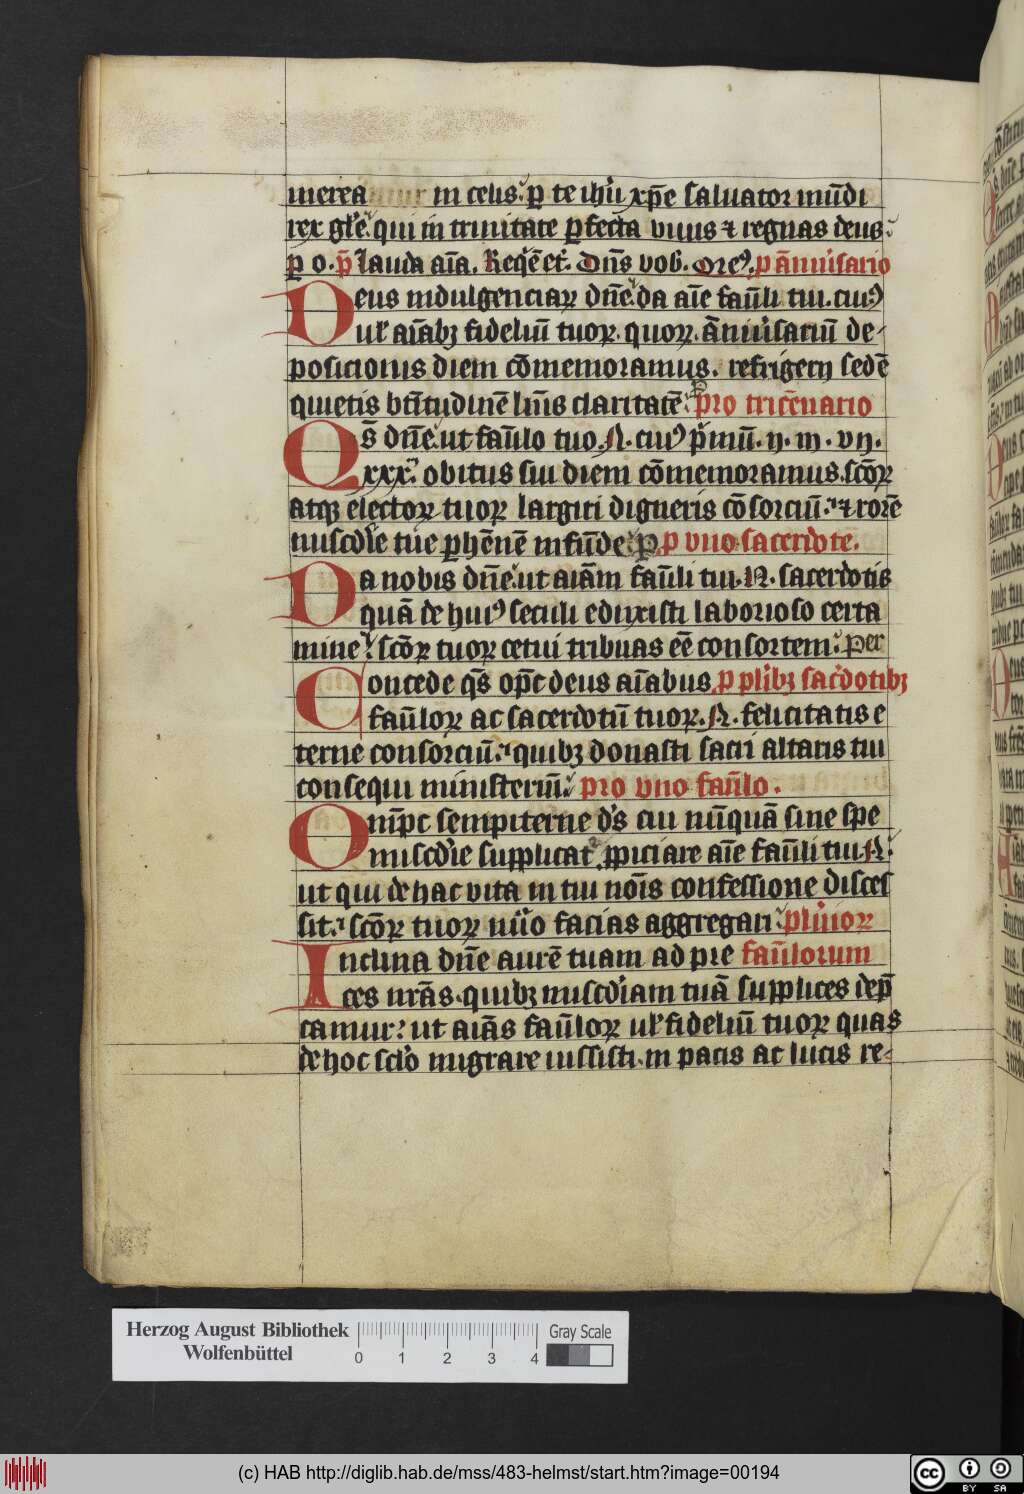 merea in celis. ꝑ te ihū xp̄e saluator mūdi
rex gl̄e. qui in trinitate ꝑfecta viuis ⁊ regnas deus.
ꝑ o. p̄ lauda aīa. Req̄e et̄. Dn̄s vob. Orem9. ꝑ āniu'sario
Deus indulgenciaꝝ dn̄e. da aīe faūli tui. cui9
ul' aīabꝫ fideliū tuoꝝ. quoꝝ. āniu'sariū de-
posicionis diem cōmemoramus. refrigerij sedē
quietis btītudinē lūis claritatē. pro tricēnario
Qs̄ dn̄e. ut faūlo tuo. N. cui9 p'mū. ij. iij. vij.
xxx. obitus sui diem cōmemoramus. scōꝝ
atqꝫ electoꝝ tuoꝝ largiri digneris cōsorciū. ⁊ rorē
mis'cdīe tue ꝑhēnē infūde. P. ꝑ vno sacerdote.
Da nobis dn̄e. ut aīam faūli tui. N. sacerdotis
quā de hui9 seculi eduxisti laborioso certa
mine. scōꝝ tuoꝝ cetui tribuas eē consortem. Per
Concede qs̄ op̄c deus aīabus ꝑ pl'ibꝫ sac'dotibꝫ
faūloꝝ ac sacerdotū tuoꝝ. N. felicitatis e
terne consorciū. quibꝫ donasti sacri altaris tui
consequi ministeriū. pro vno faūlo.
Om̄pc sempiterne d's cui nūquā sine spe
mis'cdīe supplicat. ꝓpiciare aīe faūli tui N.
ut qui de hac vita in tui nōis confessione disces
sit. scōꝝ tuoꝝ nūo facias aggregari. pl'rioꝝ
Inclina dn̄e aurē tuam ad pre faūlorum
ces nr̄as. quibꝫ mis'cdīam tuā supplices dep̄
camur. ut aīas faūloꝝ ul' fideliū tuoꝝ quas
de hoc sc'lo migrare iussisti. in pacis ac lucis re-
Herzog August Bibliothek
Wolfenbüttel
0 1 2 3 4
Gray Scale
(c) HAB http://diglib.hab.de/mss/483-helmst/start.htm?image=00194
cc BY SA